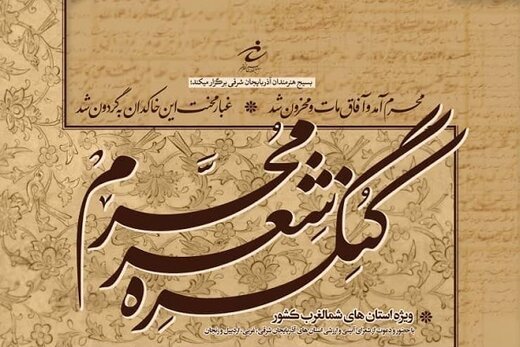 بسیج هنرمندان آذربایجان شرقی برگزار میکند؛
محرم آمد و آفاق مات و محزون شد * غبار محنت این خاکدان به گردون شد
کنگره شعر محرم
* ویژه استان های شمالغرب کشور
با حضور و دعوت از شعرای آیینی و ارزشی استان های آذربایجان شرقی، غربی، اردبیل و زنجان